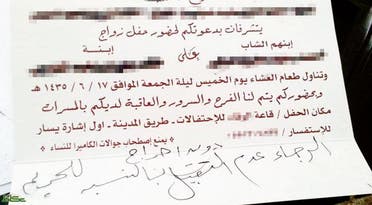 يتشرفان بدعوتكم لحضور حفل زواج
إبنهم الشاب
على
إبنة
وتناول طعام العشاء يوم الخميس ليلة الجمعة الموافق ١٧ / ٦ / ١٤٣٥ هـ
وبحضوركم يتم لنا الفرح والسرور والعاقبة لديكم بالمسرات
مكان الحفل / قاعة للإحتفالات - طريق المدينة - اول إشارة يسار
للإستفسار /
* يمنع إصطحاب جوالات الكاميرا للنساء
دون احراج
الرجاء عدم بالنسبه للحريم